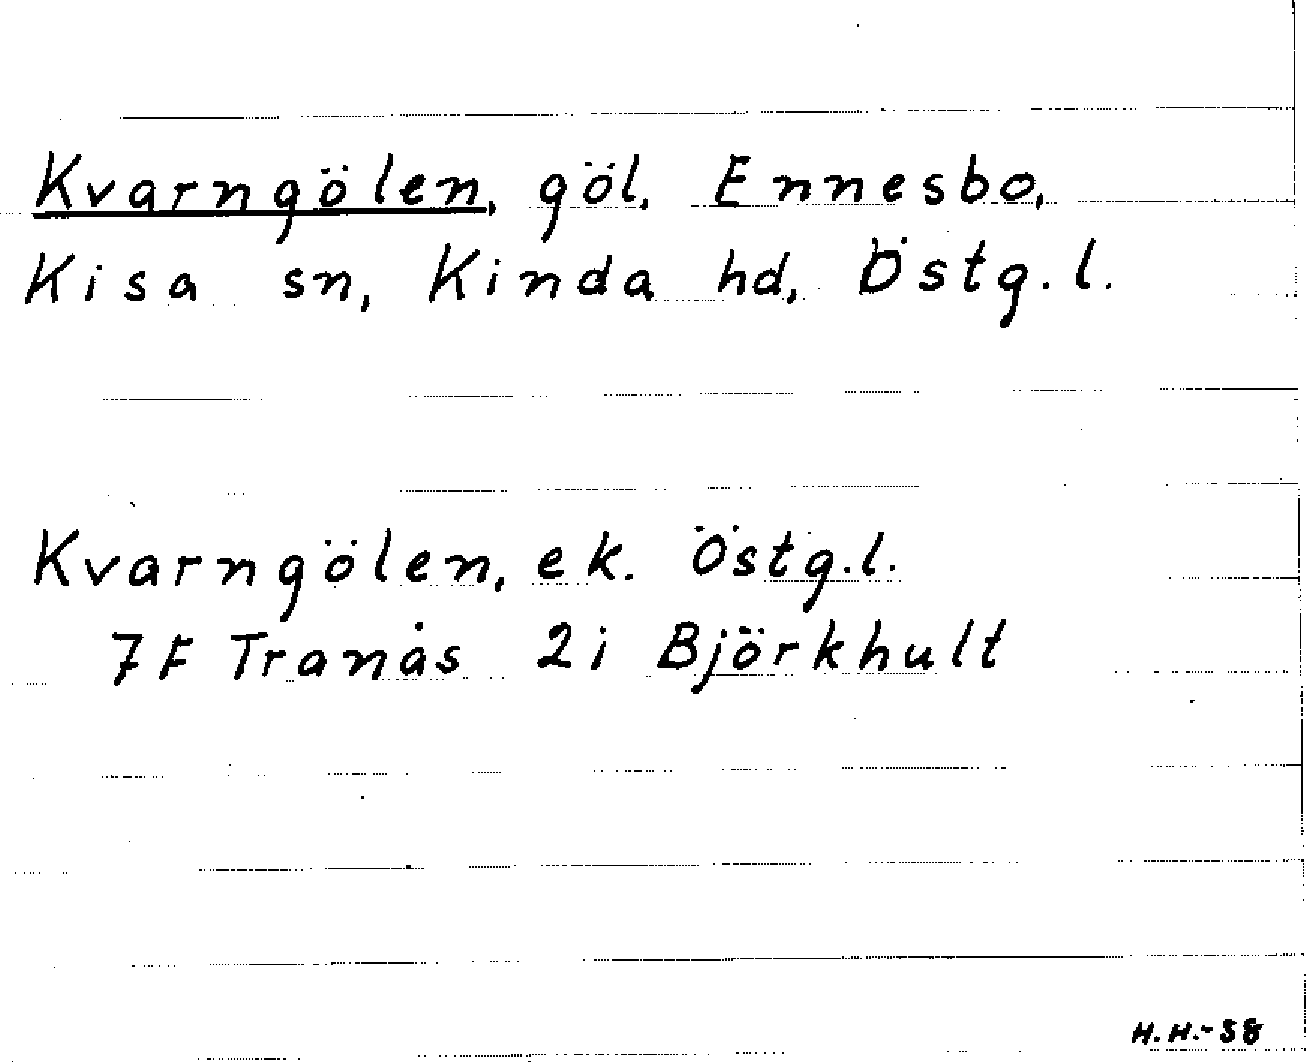 Kvarngölen, göl, Ennesbo,
Kisa sn, Kinda hd, Östg.l.
Kvarngölen, ek. Östg.l.
7F Tranås 2i Björkhult
H.H.-58